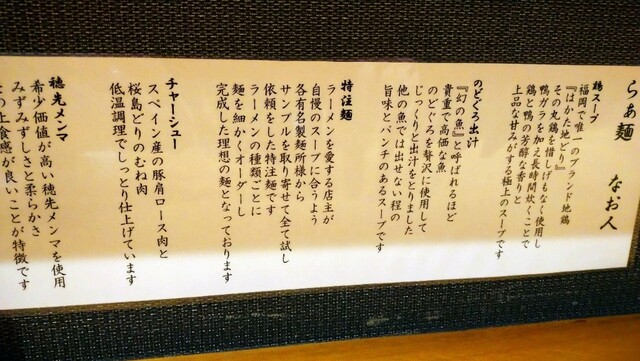 らぁ麺 なお人
鶏スープ
福岡で唯一のブランド地鶏
『はかた地どり』
その丸鶏を惜しげもなく使用し
鴨ガラを加え長時間炊くことで
鶏と鴨の芳醇な香りと
上品な甘みがする極上のスープです
のどぐろ出汁
『幻の魚』と呼ばれるほど
貴重で高価な魚
のどぐろを贅沢に使用して
じっくりと出汁をとりました
他の魚では出せない程の
旨味とパンチのあるスープです
特注麺
ラーメンを愛する店主が
自慢のスープに合うよう
各有名製麺所様から
サンプルを取り寄せて全て試し
依頼をした特注麺です
ラーメンの種類ごとに
麺を細かくオーダーし
完成した理想の麺となっております
チャーシュー
スペイン産の豚肩ロース肉と
桜島どりのむね肉
低温調理でしっとり仕上げています
穂先メンマ
希少価値が高い穂先メンマを使用
みずみずしさと柔らかさ
上食感が良いことが特徴です